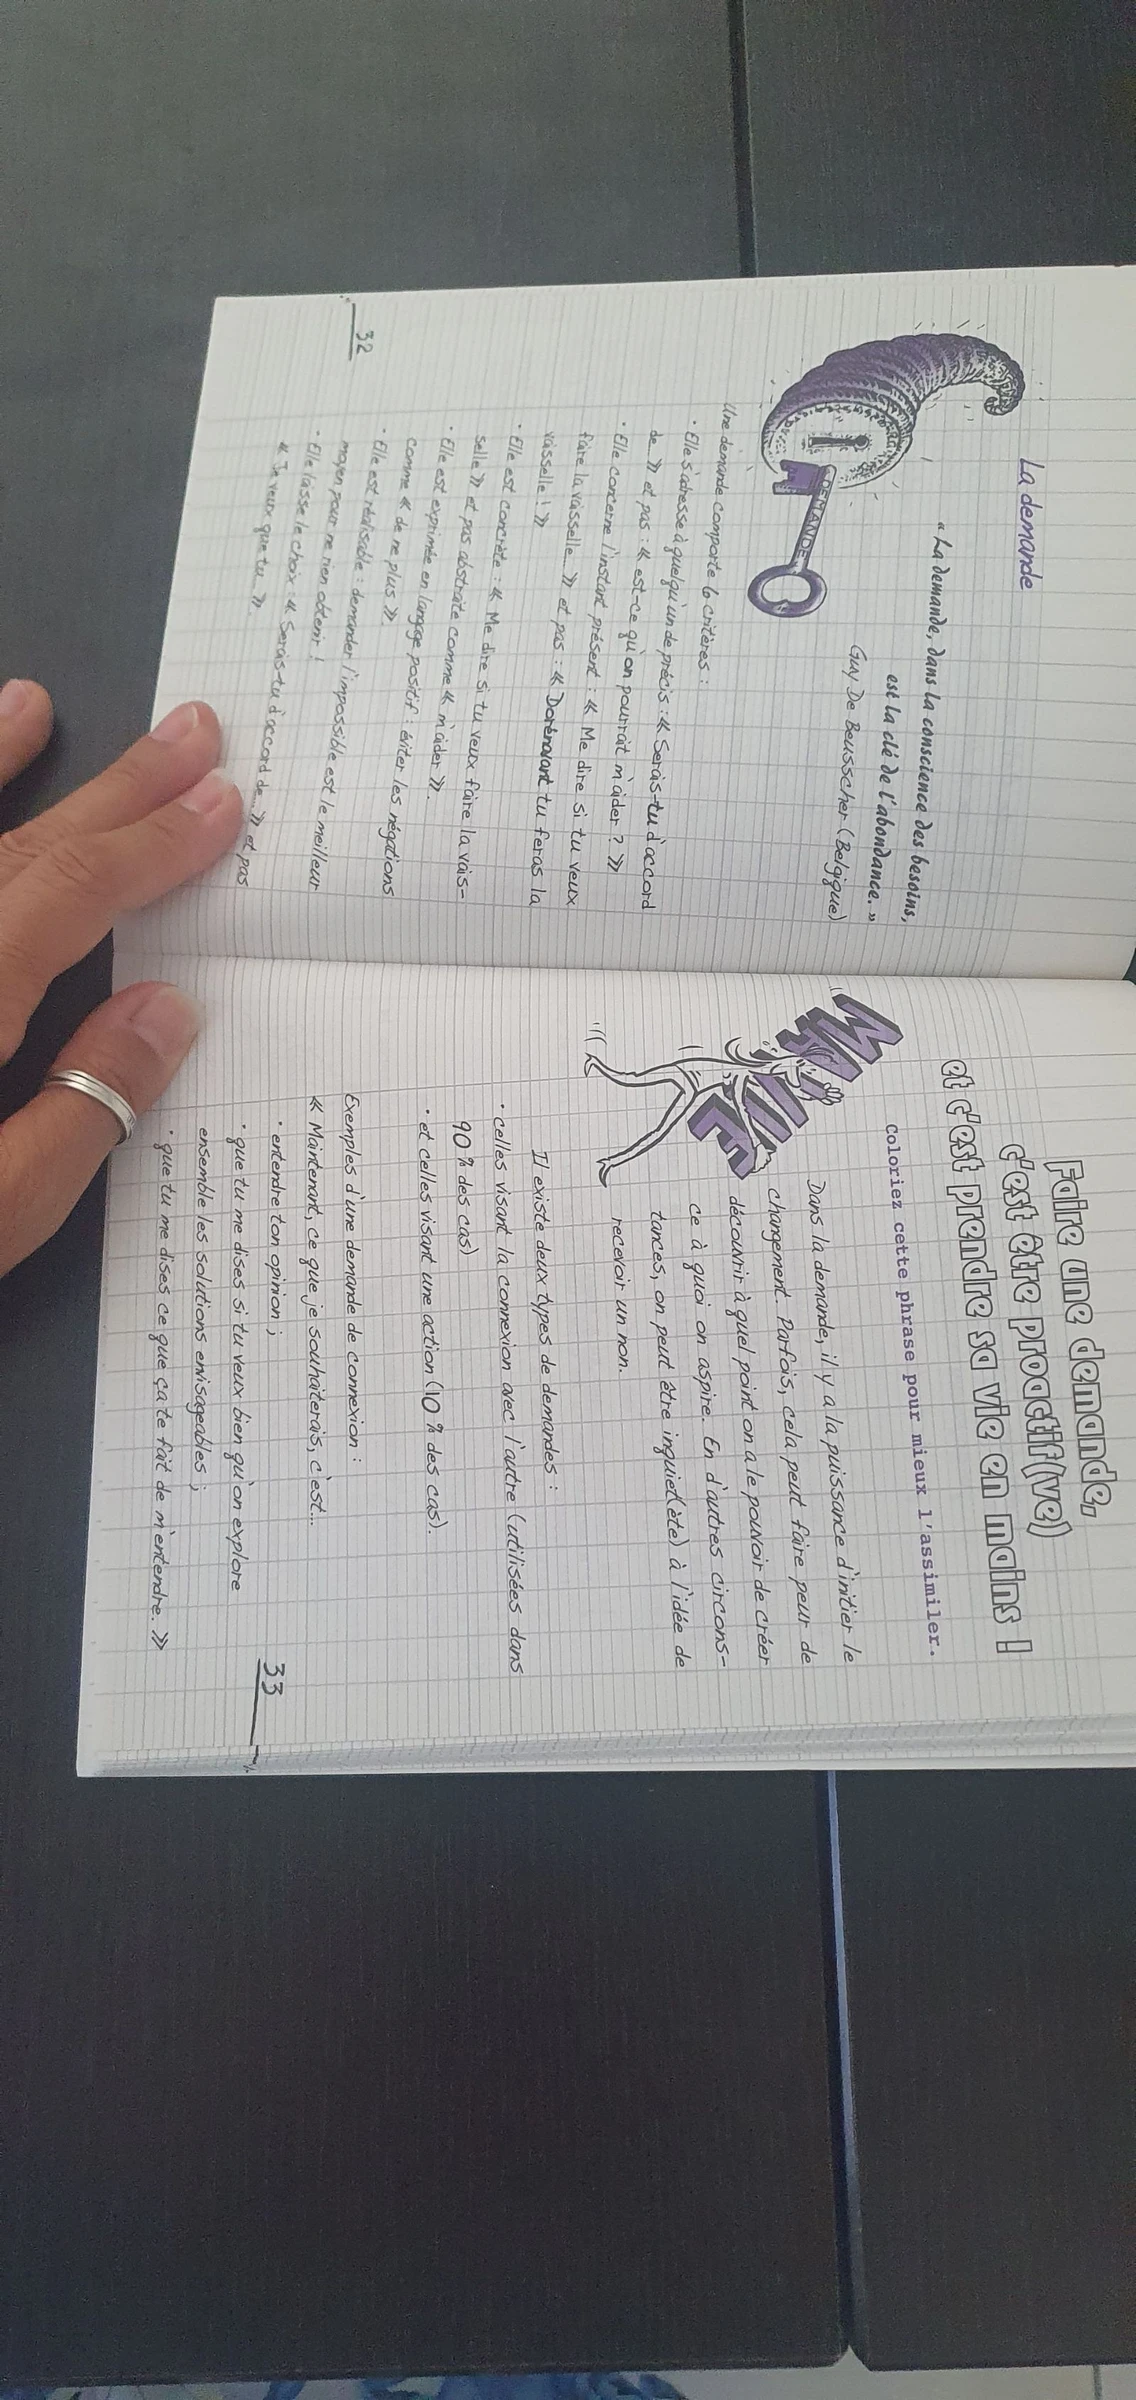 La demande
« La demande, dans la conscience des besoins,
est la clé de l'abondance. »
Guy De Beusscher (Belgique)
DEMANDE
Une demande comporte 6 critères :
• Elle s'adresse à quelqu'un de précis : « Serais-tu d'accord
de... » et pas : « est-ce qu'on pourrait m'aider ? »
• Elle concerne l'instant présent : « Me dire si tu veux
faire la vaisselle... » et pas : « Dorénavant tu feras la
vaisselle ! »
• Elle est concrète : « Me dire si tu veux faire la vais-
selle » et pas abstraite comme « m'aider ».
• Elle est exprimée en langage positif : éviter les négations
comme « de ne plus ».
• Elle est réalisable : demander l'impossible est le meilleur
moyen pour ne rien obtenir !
• Elle laisse le choix : « Serais-tu d'accord de... » et pas
« Je veux que tu ».
32
Faire une demande,
c'est être proactif(ve)
et c'est prendre sa vie en mains !
Coloriez cette phrase pour mieux l'assimiler.
MA VIE
Dans la demande, il y a la puissance d'initier le
changement. Parfois, cela peut faire peur de
découvrir à quel point on a le pouvoir de créer
ce à quoi on aspire. En d'autres circons-
tances, on peut être inquiet(ète) à l'idée de
recevoir un non.
Il existe deux types de demandes :
• celles visant la connexion avec l'autre (utilisées dans
90 % des cas)
• et celles visant une action (10 % des cas).
Exemples d'une demande de connexion :
« Maintenant, ce que je souhaiterais, c'est...
• entendre ton opinion ;
• que tu me dises si tu veux bien qu'on explore
ensemble les solutions envisageables ;
• que tu me dises ce que ça te fait de m'entendre. »
33